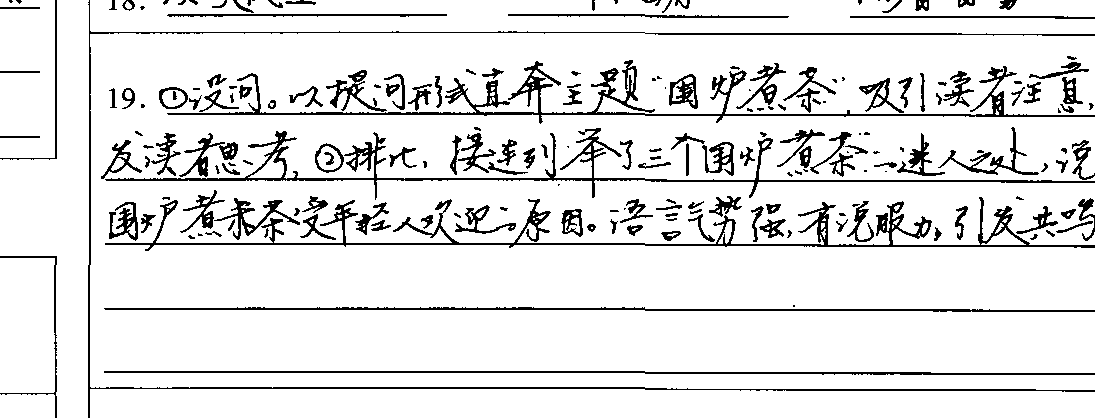 18.
19. ①设问。以提问形式直奔主题“围炉煮茶”,吸引读者注意,
发读者思考,②排比,接连列举了三个围炉煮茶的迷人之处,说
围炉煮茶受年轻人欢迎的原因。语言气势强,有说服力,引发共鸣